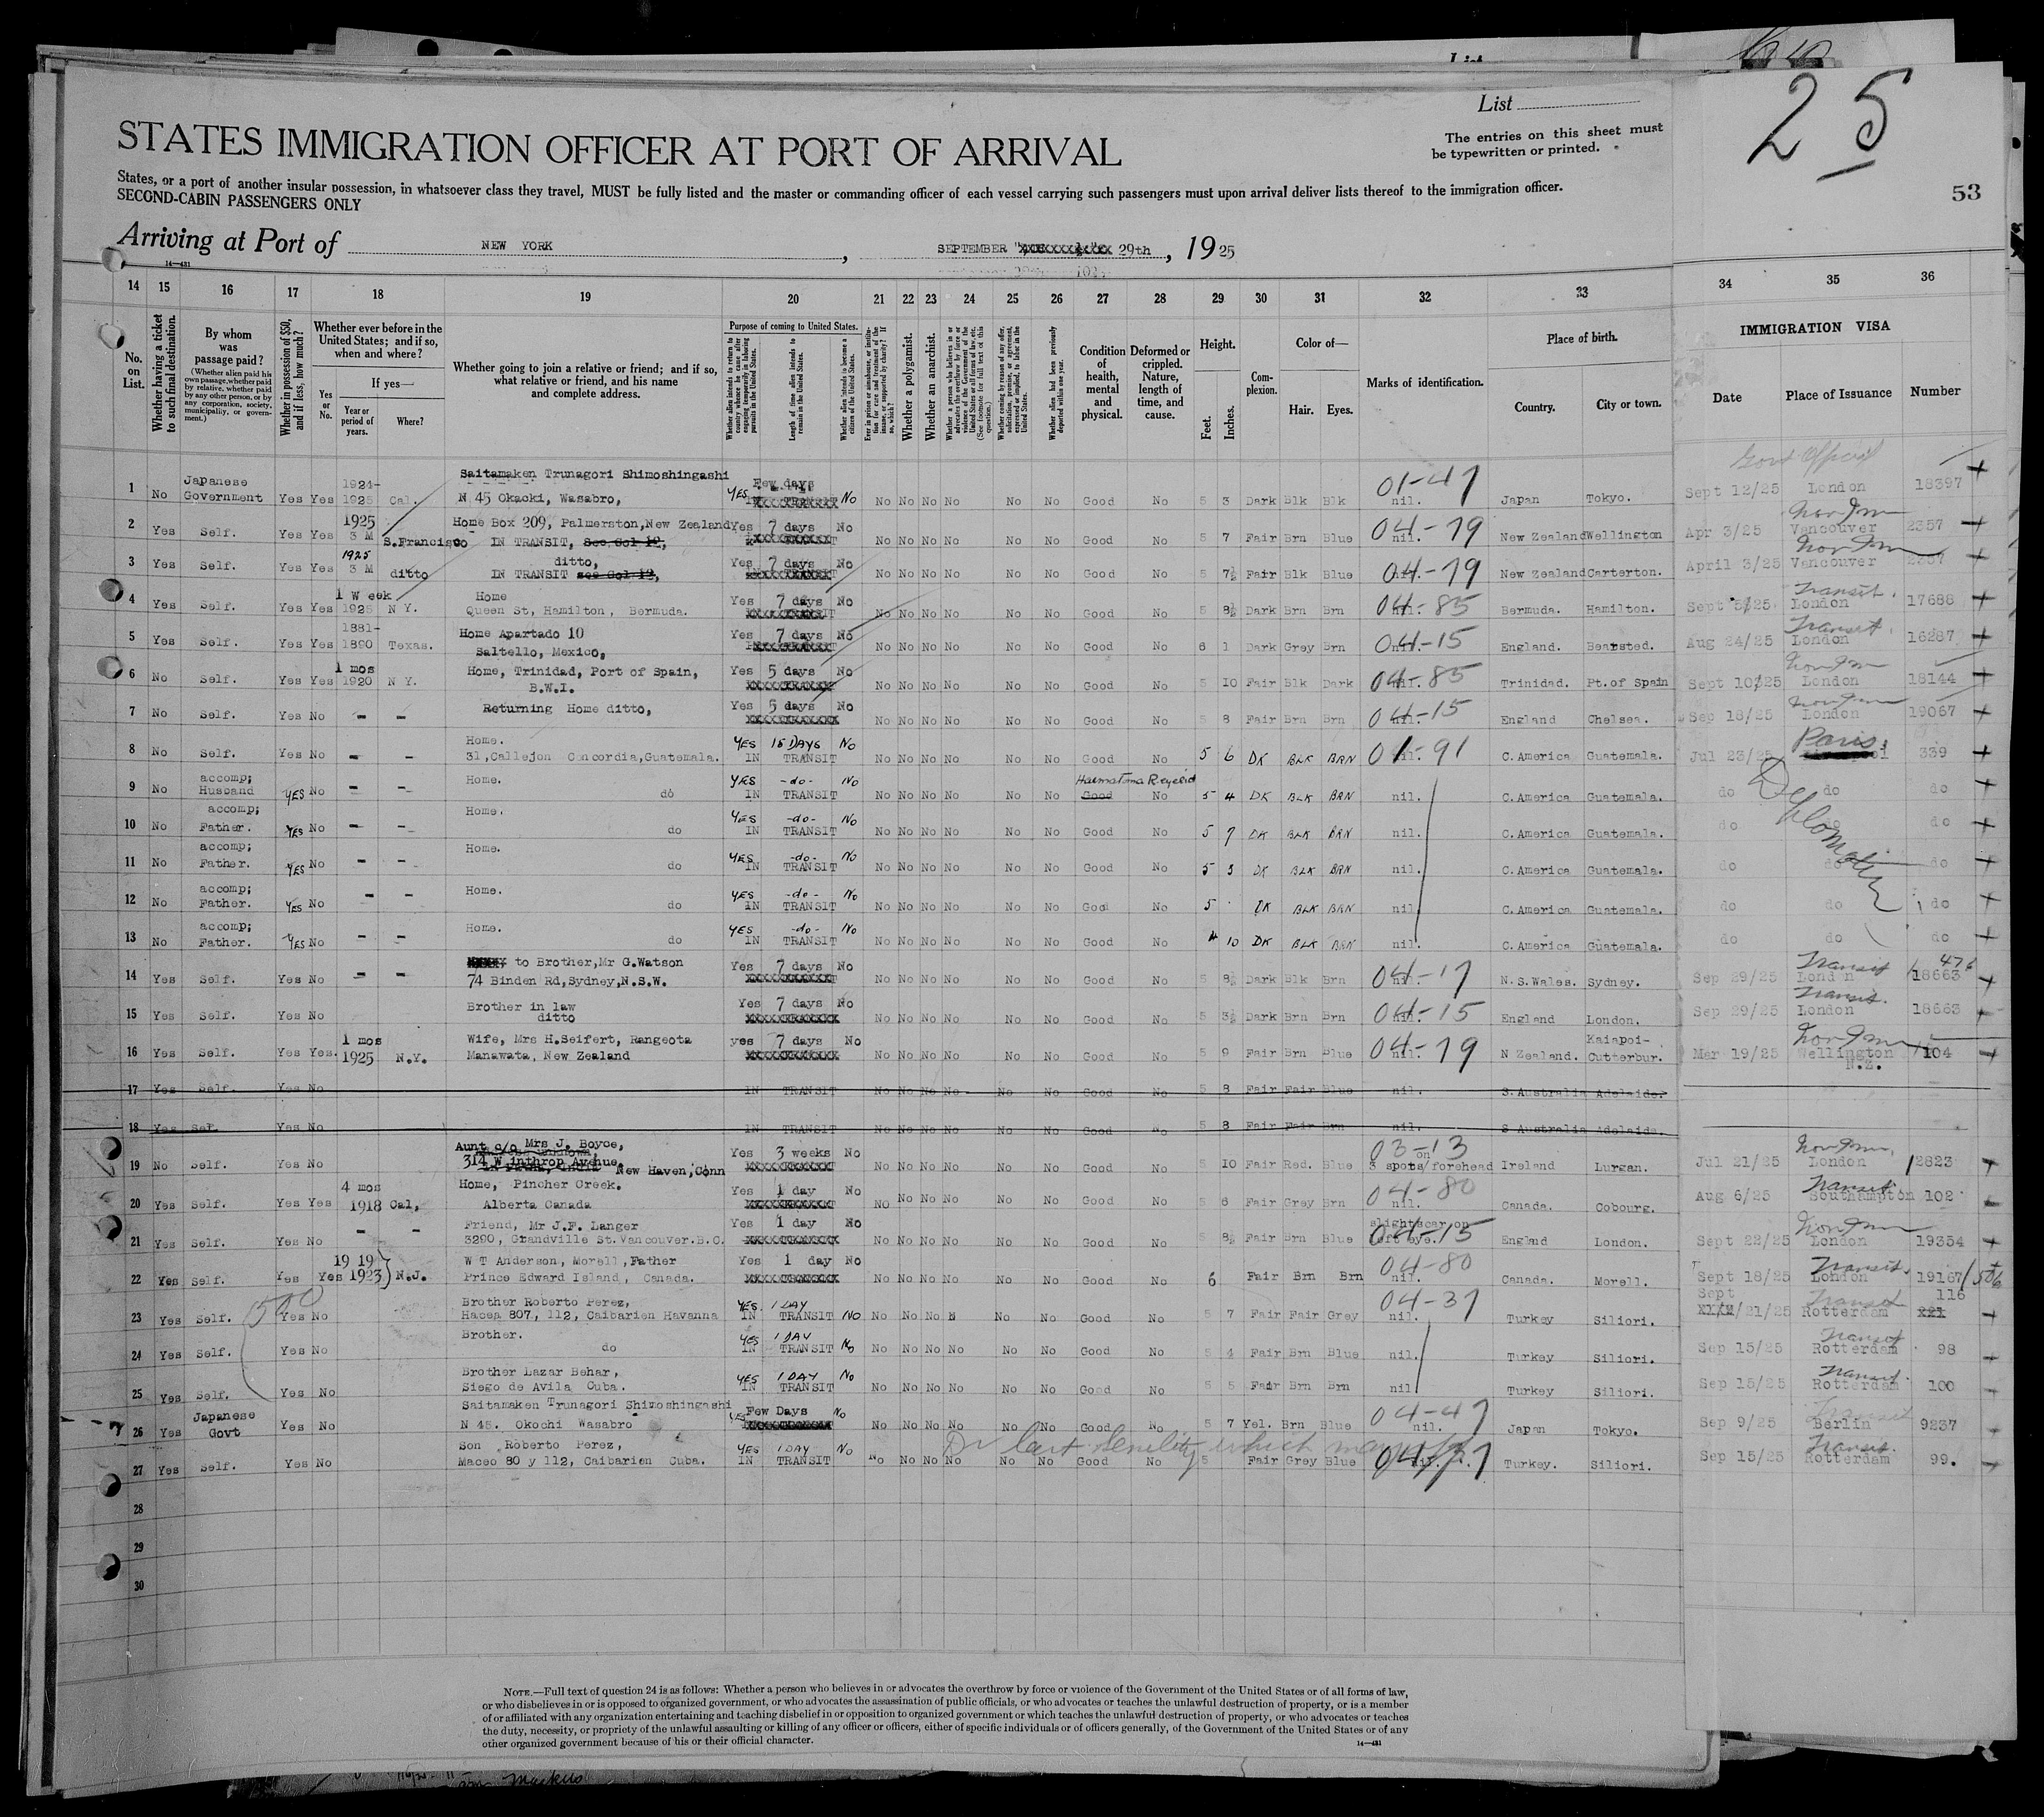 List
25
53
STATES IMMIGRATION OFFICER AT PORT OF ARRIVAL
The entries on this sheet must
be typewritten or printed.
States, or a port of another insular possession, in whatsoever class they travel, MUST be fully listed and the master or commanding officer of each vessel carrying such passengers must upon arrival deliver lists thereof to the immigration officer.
SECOND-CABIN PASSENGERS ONLY
Arriving at Port of NEW YORK, SEPTEMBER 29th, 1925
14—431
14 15 16 17 18 19 20 21 22 23 24 25 26 27 28 29 30 31 32 33 34 35 36
No. on List.
Whether having a ticket to such final destination.
By whom was passage paid?
(Whether alien paid his own passage, whether paid by relative, whether paid by any other person, or by any corporation, society, municipality, or government.)
Whether in possession of $50, and if less, how much?
Whether ever before in the United States; and if so, when and where?
Yes or No.
If yes—
Year or period of years.
Where?
Whether going to join a relative or friend; and if so, what relative or friend, and his name and complete address.
Purpose of coming to United States.
Whether alien intends to return to country whence he came after engaging temporarily in laboring pursuits in the United States.
Length of time alien intends to remain in the United States.
Whether alien intends to become a citizen of the United States.
Ever in prison or almshouse, or institution for care and treatment of the insane, or supported by charity? If so, which?
Whether a polygamist.
Whether an anarchist.
Whether a person who believes in or advocates the overthrow by force or violence of the Government of the United States or all forms of law, etc. (See footnote for full text of this question.)
Whether coming by reason of any offer, solicitation, promise, or agreement, expressed or implied, to labor in the United States.
Whether alien had been previously deported within one year.
Condition of health, mental and physical.
Deformed or crippled. Nature, length of time, and cause.
Height.
Feet.
Inches.
Complexion.
Color of—
Hair. Eyes.
Marks of identification.
Place of birth.
Country. City or town.
IMMIGRATION VISA
Date Place of Issuance Number
Govt Official
1 No Japanese Government Yes Yes 1924-1925 Cal. Saitamaken Trunagori Shimoshingashi N 45 Okaoki, Wasabro, YES Few days No No No No No No No Good No 5 3 Dark Blk Blk 01-47 nil. Japan Tokyo. Sept 12/25 London 18397
2 Yes Self. Yes Yes 1925 3 M S.Francisco Home Box 209, Palmerston,New Zealand IN TRANSIT, See Col 12, Yes 7 days No No No No No No No Good No 5 7 Fair Brn Blue 04-79 nil. New Zealand Wellington Apr 3/25 Vancouver 2357
3 Yes Self. Yes Yes 1925 3 M ditto ditto, IN TRANSIT see Col 12, Yes 7 days No No No No No No No Good No 5 7½ Fair Blk Blue 04-79 New Zealand Carterton. April 3/25 Vancouver 2357
4 Yes Self. Yes Yes 1 Week 1925 N Y. Home Queen St, Hamilton, Bermuda. Yes 7 days No No No No No No No Good No 5 8½ Dark Brn Brn 04-85 nil. Bermuda. Hamilton. Sept 5/25 Transit. London 17688
5 Yes Self. Yes Yes 1881-1890 Texas. Home Apartado 10 Saltello, Mexico, Yes 7 days No No No No No No No Good No 6 1 Dark Grey Brn 04-15 nil. England. Bearsted. Aug 24/25 Transit London 16287
6 No Self. Yes Yes 1 mos 1920 N Y. Home, Trinidad, Port of Spain, B.W.I. Yes 5 days No No No No No No No Good No 5 10 Fair Blk Dark 04-85 nil. Trinidad. Pt.of Spain Sept 10/25 London 18144
7 No Self. Yes No - - Returning Home ditto, Yes 5 days No No No No No No No Good No 5 8 Fair Brn Brn 04-15 nil. England Chelsea. Sep 18/25 London 19067
8 No Self. Yes No - - Home. 31,Callejon Concordia,Guatemala. YES 15 DAYS No IN TRANSIT No No No No No No Good No 5 6 DK BLK BRN 01-91 nil. C.America Guatemala. Jul 23/25 Paris 339
9 No accomp; Husband YES No - - Home. do YES -do- No IN TRANSIT No No No No No No Haematoma R eyelid Good No 5 4 DK BLK BRN nil. C.America Guatemala. do Diplomatic do do
10 No accomp; Father. YES No - - Home. do YES -do- No IN TRANSIT No No No No No No Good No 5 7 DK BLK BRN nil. C.America Guatemala. do do do
11 No accomp; Father. YES No - - Home. do YES -do- No IN TRANSIT No No No No No No Good No 5 3 DK BLK BRN nil. C.America Guatemala. do do do
12 No accomp; Father. YES No - - Home. do YES -do- No IN TRANSIT No No No No No No Good No 5 DK BLK BRN nil. C.America Guatemala. do do do
13 No accomp; Father. YES No - - Home. do YES -do- No IN TRANSIT No No No No No No Good No 4 10 DK BLK BRN nil. C.America Guatemala. do do do
14 Yes Self. Yes No - - to Brother,Mr G.Watson 74 Binden Rd,Sydney,N.S.W. Yes 7 days No No No No No No No Good No 5 8½ Dark Blk Brn 04-17 nil. N.S.Wales. Sydney. Sep 29/25 Transit London 476 18663
15 Yes Self. Yes No Brother in law ditto Yes 7 days No No No No No No No Good No 5 3½ Dark Brn Brn 04-15 England London. Sep 29/25 Transit. London 18663
16 Yes Self. Yes Yes 1 mos 1925 N.Y. Wife, Mrs H.Seifert, Rangeota Manawata, New Zealand yes 7 days No No No No No No No Good No 5 9 Fair Brn Blue 04-79 nil. N Zealand. Kaiapoi-Cutterbur. Mar 19/25 Wellington N.Z. 104
17 Yes Self. Yes No IN TRANSIT No No No No No No Good No 5 8 Fair Fair Blue nil. S.Australia Adelaide.
18 Yes Self. Yes No IN TRANSIT No No No No No No Good No 5 8 Fair Fair Brn nil. S Australia Adelaide.
19 No Self. Yes No Aunt c/o Mrs J. Boyce, 314 Winthrop Avenue, New Haven,Conn Yes 3 weeks No No No No No No No Good No 10 Fair Red. Blue 03-13 3 spots on forehead Ireland Lurgan. Jul 21/25 London 12823
20 Yes Self. Yes Yes 4 mos 1918 Cal, Home, Pincher Creek. Alberta Canada Yes 1 day No No No No No No No Good No 5 6 Fair Grey Brn 04-80 nil. Canada. Cobourg. Aug 6/25 Transit Southampton 102
21 Yes Self. Yes No - - Friend, Mr J.F. Langer 3290, Grandville St.Vancouver.B.C. Yes 1 day No No No No No No No Good No 5 8½ Fair Brn Blue slight scar on left eye. 04-15 England London. Sept 22/25 London 19354
22 Yes Self. Yes Yes 1919 1923 N.J. W T Anderson, Morell,Father Prince Edward Island, Canada. Yes 1 day No No No No No No No Good No 6 Fair Brn Brn 04-80 nil. Canada. Morell. Sept 18/25 Transit. London 19167/506
23 Yes Self. (500 Yes No Brother Roberto Perez, Hacea 807, 112, Caibarien Havanna YES 1 DAY IN TRANSIT NO No No No No No No Good No 5 7 Fair Fair Grey 04-37 nil. Turkey Siliori. Sept 21/25 Transit Rotterdam 116
24 Yes Self. Yes No Brother. do YES 1 DAY No IN TRANSIT No No No No No No Good No 5 4 Fair Brn Blue nil. Turkey Siliori. Sep 15/25 Transit Rotterdam 98
25 Yes Self. Yes No Brother Lazar Behar, Siego de Avila, Cuba. YES 1 DAY No IN TRANSIT No No No No No No Good No 5 5 Fair Brn Brn nil Turkey Siliori. Sep 15/25 Transit. Rotterdam 100
26 Yes Japanese Govt Yes No Saitamaken Trunagori Shimoshingashi N 45. Okochi Wasabro YES Few Days No No No No No No No Good No 5 7 Yel. Brn Blue 04-47 nil. Japan Tokyo. Sep 9/25 Transit Berlin 9237
27 Yes Self. Yes No Son Roberto Perez, Maceo 80 y 112, Caibarien Cuba. YES 1 DAY No IN TRANSIT No No No No No No Good No 5 Fair Grey Blue Turkey. Siliori. Sep 15/25 Transit. Rotterdam 99.
28
29
30
NOTE.—Full text of question 24 is as follows: Whether a person who believes in or advocates the overthrow by force or violence of the Government of the United States or of all forms of law,
or who disbelieves in or is opposed to organized government, or who advocates the assassination of public officials, or who advocates or teaches the unlawful destruction of property, or is a member
of or affiliated with any organization entertaining and teaching disbelief in or opposition to organized government or which teaches the unlawful destruction of property, or who advocates or teaches
the duty, necessity, or propriety of the unlawful assaulting or killing of any officer or officers, either of specific individuals or of officers generally, of the Government of the United States or of any
other organized government because of his or their official character.
14—431